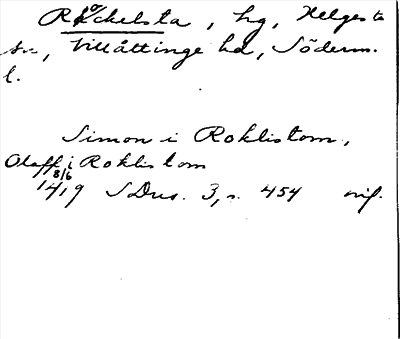 Rockelsta, hg, Helgesta
sn, Villåttinge hd, Söderm.
l.
Simon i Roklistom,
Olaff i Roklistom
8/6
1419 SDns. 3, s. 454 orif.